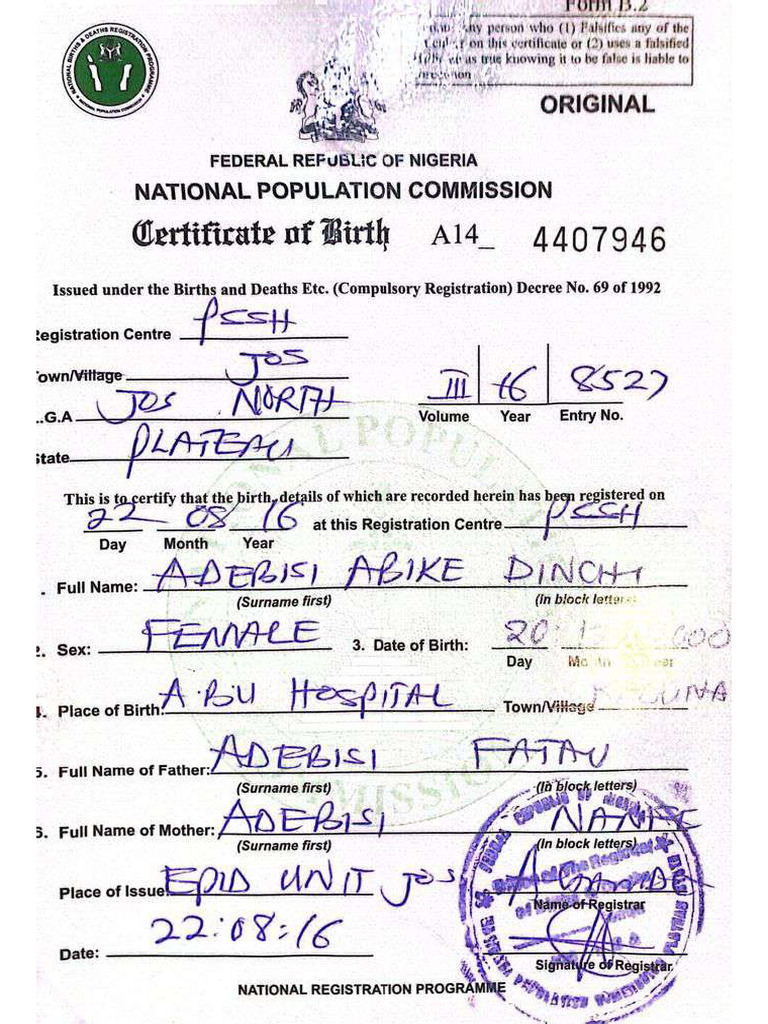 Form B.2
any person who (1) Falsifies any of the
on this certificate or (2) uses a falsified
as true knowing it to be false is liable to
ORIGINAL
NATIONAL BIRTHS & DEATHS REGISTRATION PROGRAMME
NATIONAL POPULATION COMMISSION
FEDERAL REPUBLIC OF NIGERIA
NATIONAL POPULATION COMMISSION
Certificate of Birth A14_ 4407946
Issued under the Births and Deaths Etc. (Compulsory Registration) Decree No. 69 of 1992
Registration Centre PSSH
Town/Village JOS
L.G.A JOS NORTH
III 16 8527
Volume Year Entry No.
State PLATEAU
This is to certify that the birth, details of which are recorded herein has been registered on
22 08 16 at this Registration Centre PSSH
Day Month Year
. Full Name: ADEBISI ABIKE DINCHI
(Surname first) (In block letters)
2. Sex: FEMALE 3. Date of Birth: 20
Day Month Year
4. Place of Birth: A·BU HOSPITAL Town/Village
5. Full Name of Father: ADEBISI FATAU
(Surname first) (In block letters)
6. Full Name of Mother: ADEBISI
(Surname first) (In block letters)
Place of Issue: EPID UNIT JOS
Name of Registrar
Date: 22:08:16
Signature of Registrar
NATIONAL REGISTRATION PROGRAMME